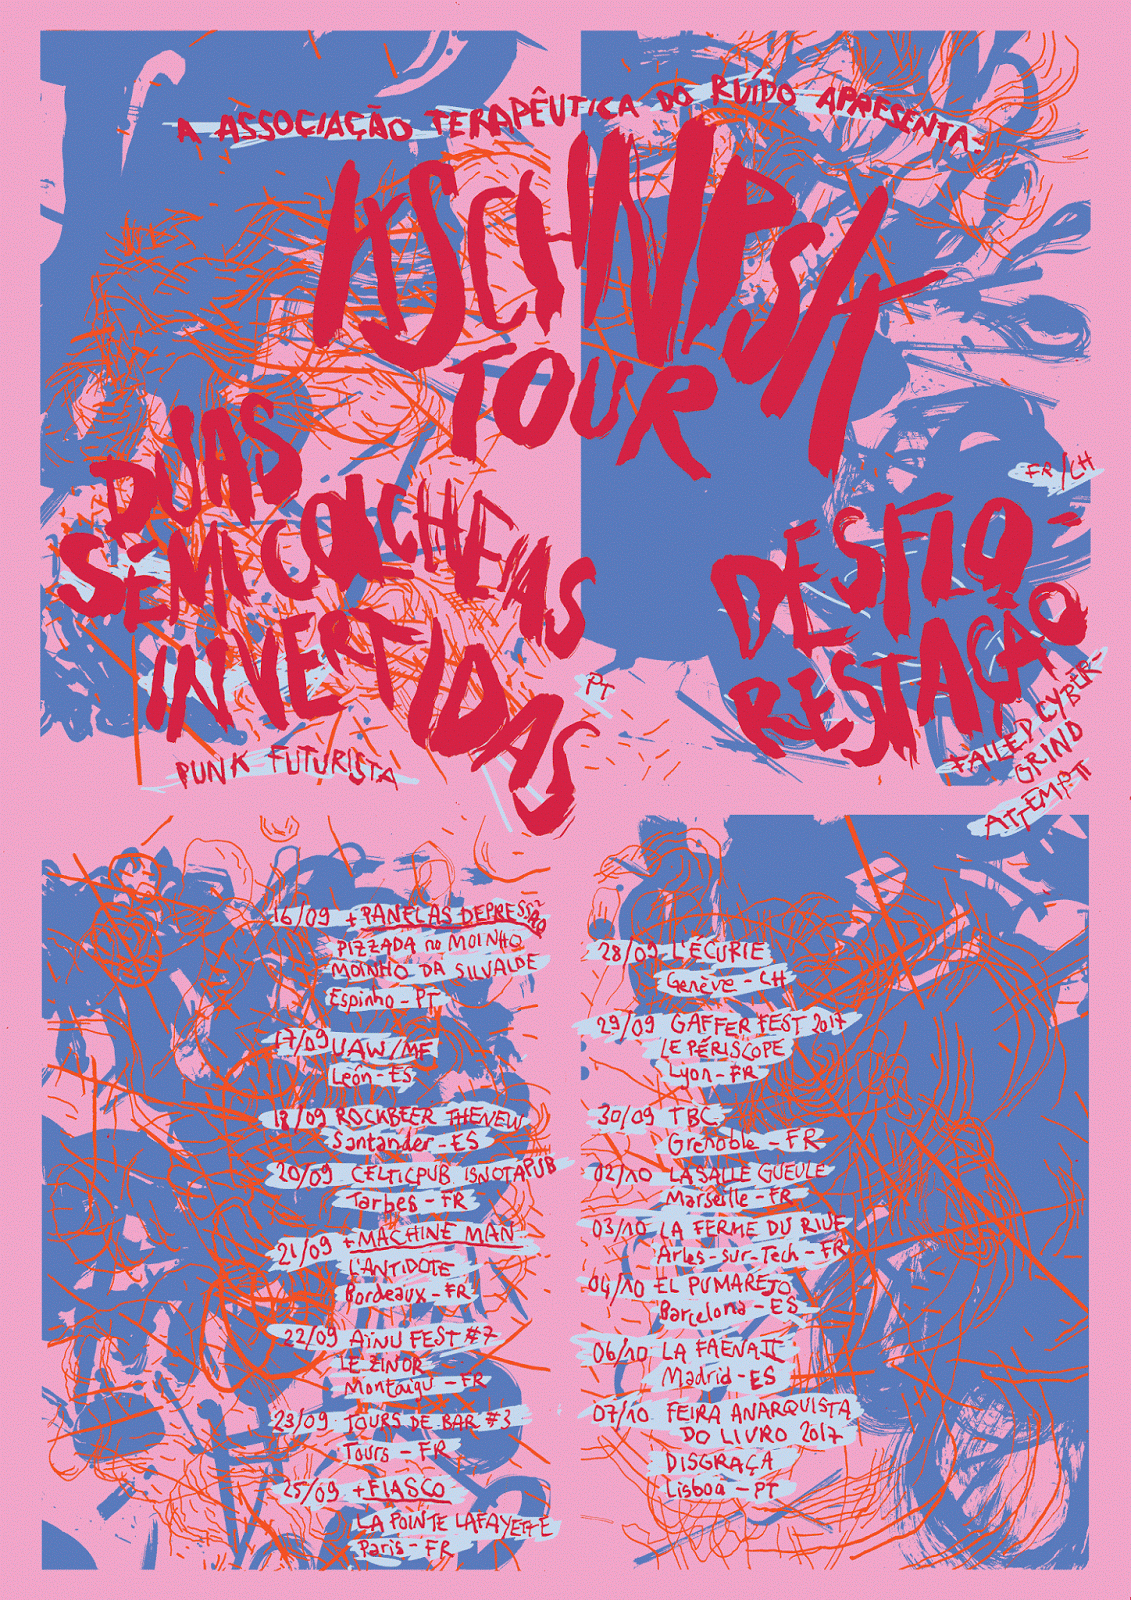 A ASSOCIAÇÃO TERAPÊUTICA DO RUÍDO APRESENTA-
ASCHNIPSA
TOUR
DUAS
SEMICOLCHEIAS
INVERTIDAS
PT
PUNK FUTURISTA
FR/CH
DESFLO-
RESTAÇÃO
FAILED CYBER-
GRIND
ATTEMPT
16/09 + PANELAS DEPRESSÃO
PIZZADA no MOINHO
MOINHO DA SILVALDE
Espinho - PT
17/09 UAW/MF
León - ES
18/09 ROCKBEER THENEW
Santander - ES
20/09 CELTICPUB ISNOTAPUB
Tarbes - FR
21/09 + MACHINE MAN
L'ANTIDOTE
Bordeaux - FR
22/09 AïNU FEST #7
LE ZINOR
Montaigu - FR
23/09 TOURS DE BAR #3
Tours - FR
25/09 + FIASCO
LA POINTE LAFAYETTE
Paris - FR
28/09 L'ÉCURIE
Genève - CH
29/09 GAFFER FEST 2017
LE PÉRISCOPE
Lyon - FR
30/09 TBC
Grenoble - FR
02/10 LA SALLE GUEULE
Marseille - FR
03/10 LA FERME DU RIUF
Arles-sur-Tech - FR
04/10 EL PUMAREJO
Barcelona - ES
06/10 LA FAENA II
Madrid - ES
07/10 FEIRA ANARQUISTA
DO LIVRO 2017
DISGRAÇA
Lisboa - PT